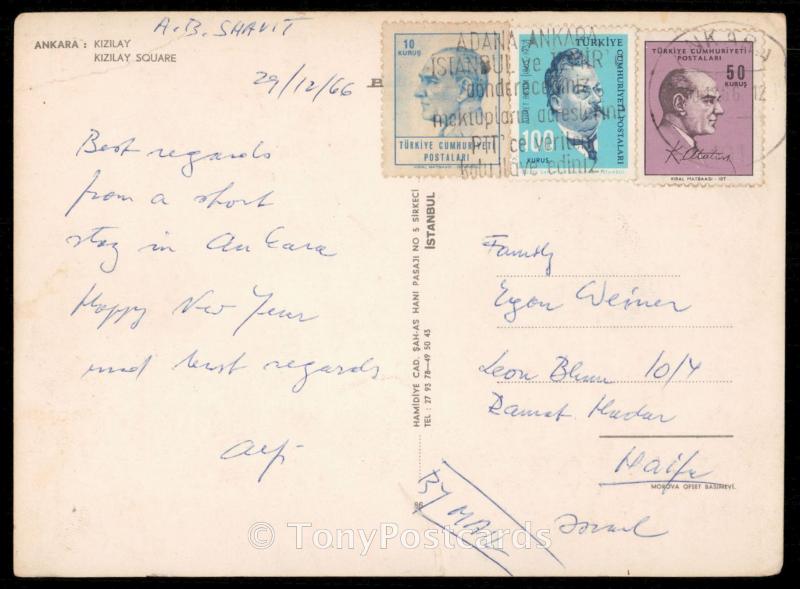 A.B. SHAVIT
ANKARA : KIZILAY
KIZILAY SQUARE
29/12/66
Best regards
from a short
stay in Ankara
Happy New Year
and best regards
HAMİDİYE CAD. ŞAH-AS HANI PASAJI NO 5 SİRKECİ
TEL : 27 93 78—49 50 45
İSTANBUL
10
KURUŞ
TÜRKİYE CUMHURİYETİ
POSTALARI
TÜRKİYE
CUMHURİYETİ POSTALARI
100
KURUŞ
TÜRKİYE CUMHURİYETİ
POSTALARI
50
KURUŞ
K. Atatürk
KIRAL MATBAASI - IST
ADANA, ANKARA
İSTANBUL ve İZMİR'e
göndereceğiniz
mektupların adreslerine
PTT'ce verilen
ilave ediniz.
ANKARA
12
Family
Egon Weiner
Leon Blum 10/4
Ramat Hadar
Haifa
MOROVA OFSET BASIMEVİ.
Israel
BY
© TonyPostcards